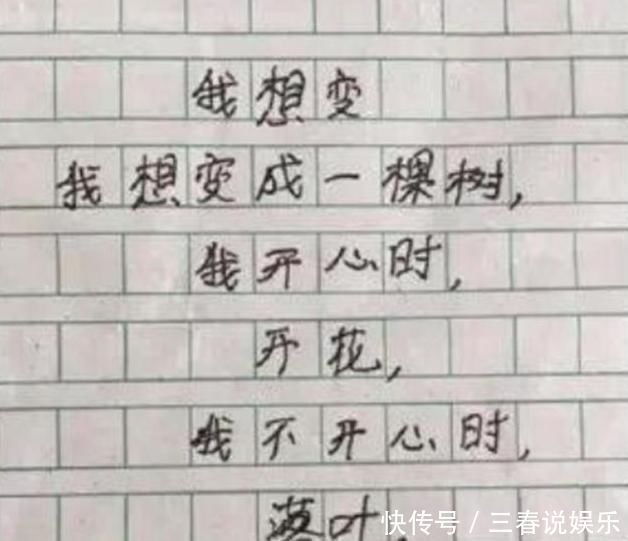 我想变
我想变成一棵树,
我开心时,
开花,
我不开心时,
落叶
快传号/三春说娱乐